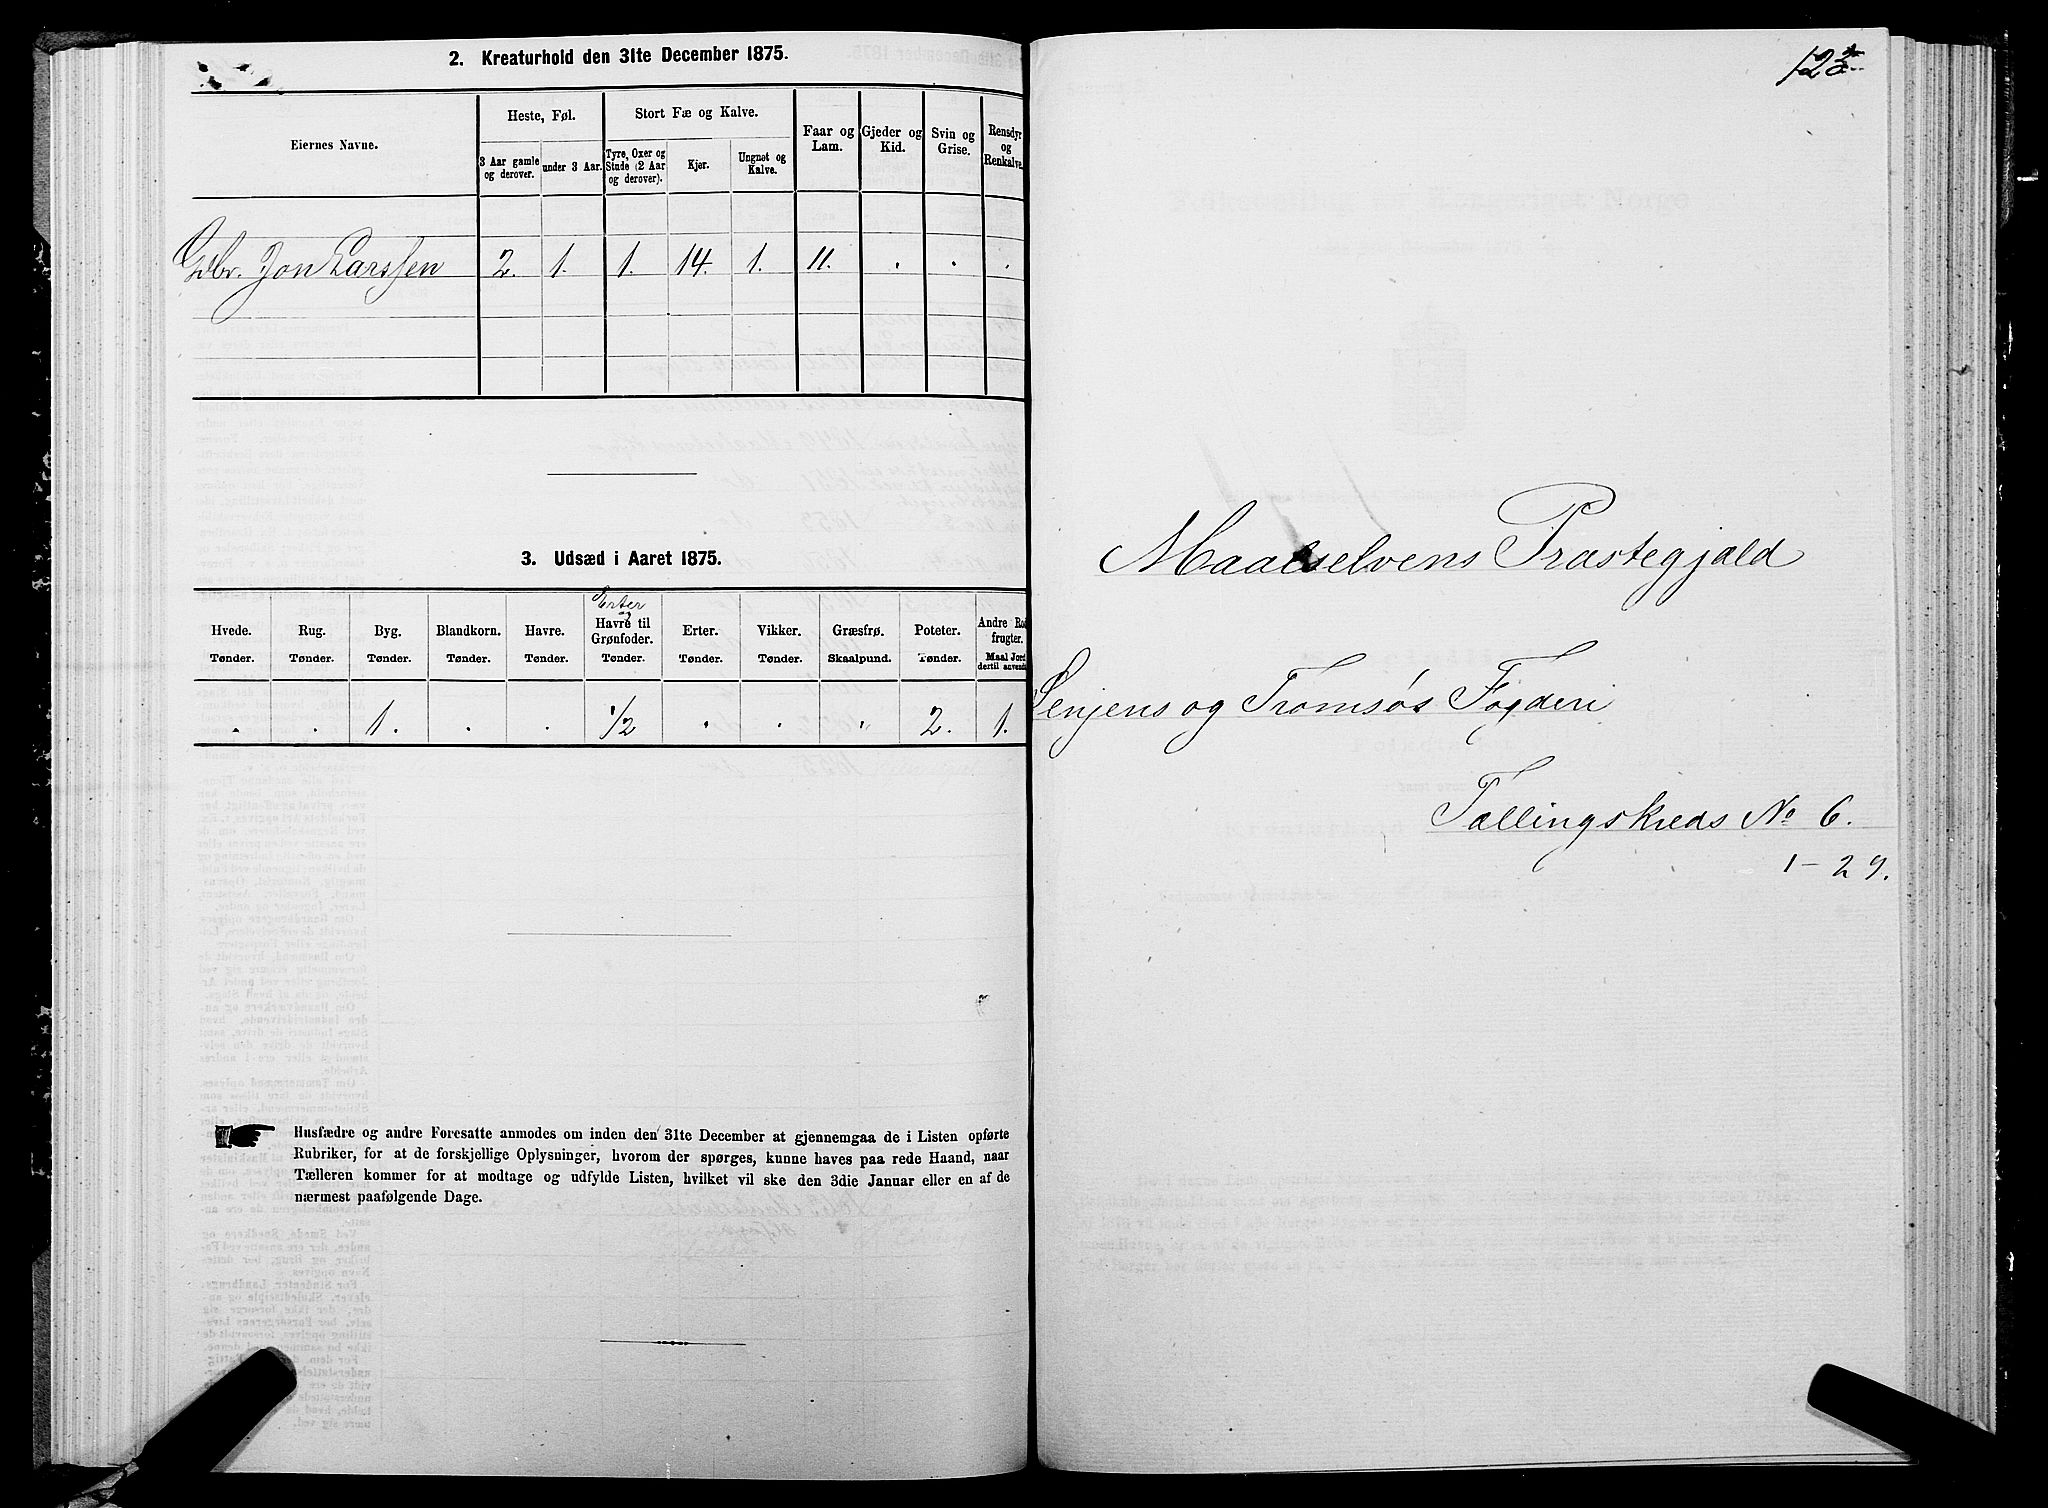 2. Kreaturhold den 31te December 1875.
Eiernes Navne.
Heste, Føl.
3 Aar gamle og derover.
under 3 Aar.
Stort Fæ og Kalve.
Tyre, Oxer og Stude (2 Aar og derover).
Kjør.
Ungnøt og Kalve.
Faar og Lam.
Gjeder og Kid.
Svin og Grise.
Rensdyr og Renkalve.
Gbr. Jon Larssen 2. 1. 1. 14. 1. 11. . . .
3. Udsæd i Aaret 1875.
Erter og
Hvede. Rug. Byg. Blandkorn. Havre. Havre til Grønfoder. Erter. Vikker. Græsfrø. Poteter. Andre Ro frugter.
Tønder. Tønder. Tønder. Tønder. Tønder. Tønder. Tønder. Tønder. Skaalpund. Tønder. Maal Jord dertil anvendt
. . 1. . . 1/2 . . " 2. 1.
Husfædre og andre Foresatte anmodes om inden den 31te December at gjennemgaa de i Listen opførte
Rubriker, for at de forskjellige Oplysninger, hvorom der spørges, kunne haves paa rede Haand, naar
Tælleren kommer for at modtage og udfylde Listen, hvilket vil ske den 3die Januar eller en af de
nærmest paafølgende Dage.
Maalselvens Præstegjæld
Senjens og Tromsøs Fogderi
Tællingskreds No 6.
1-29.